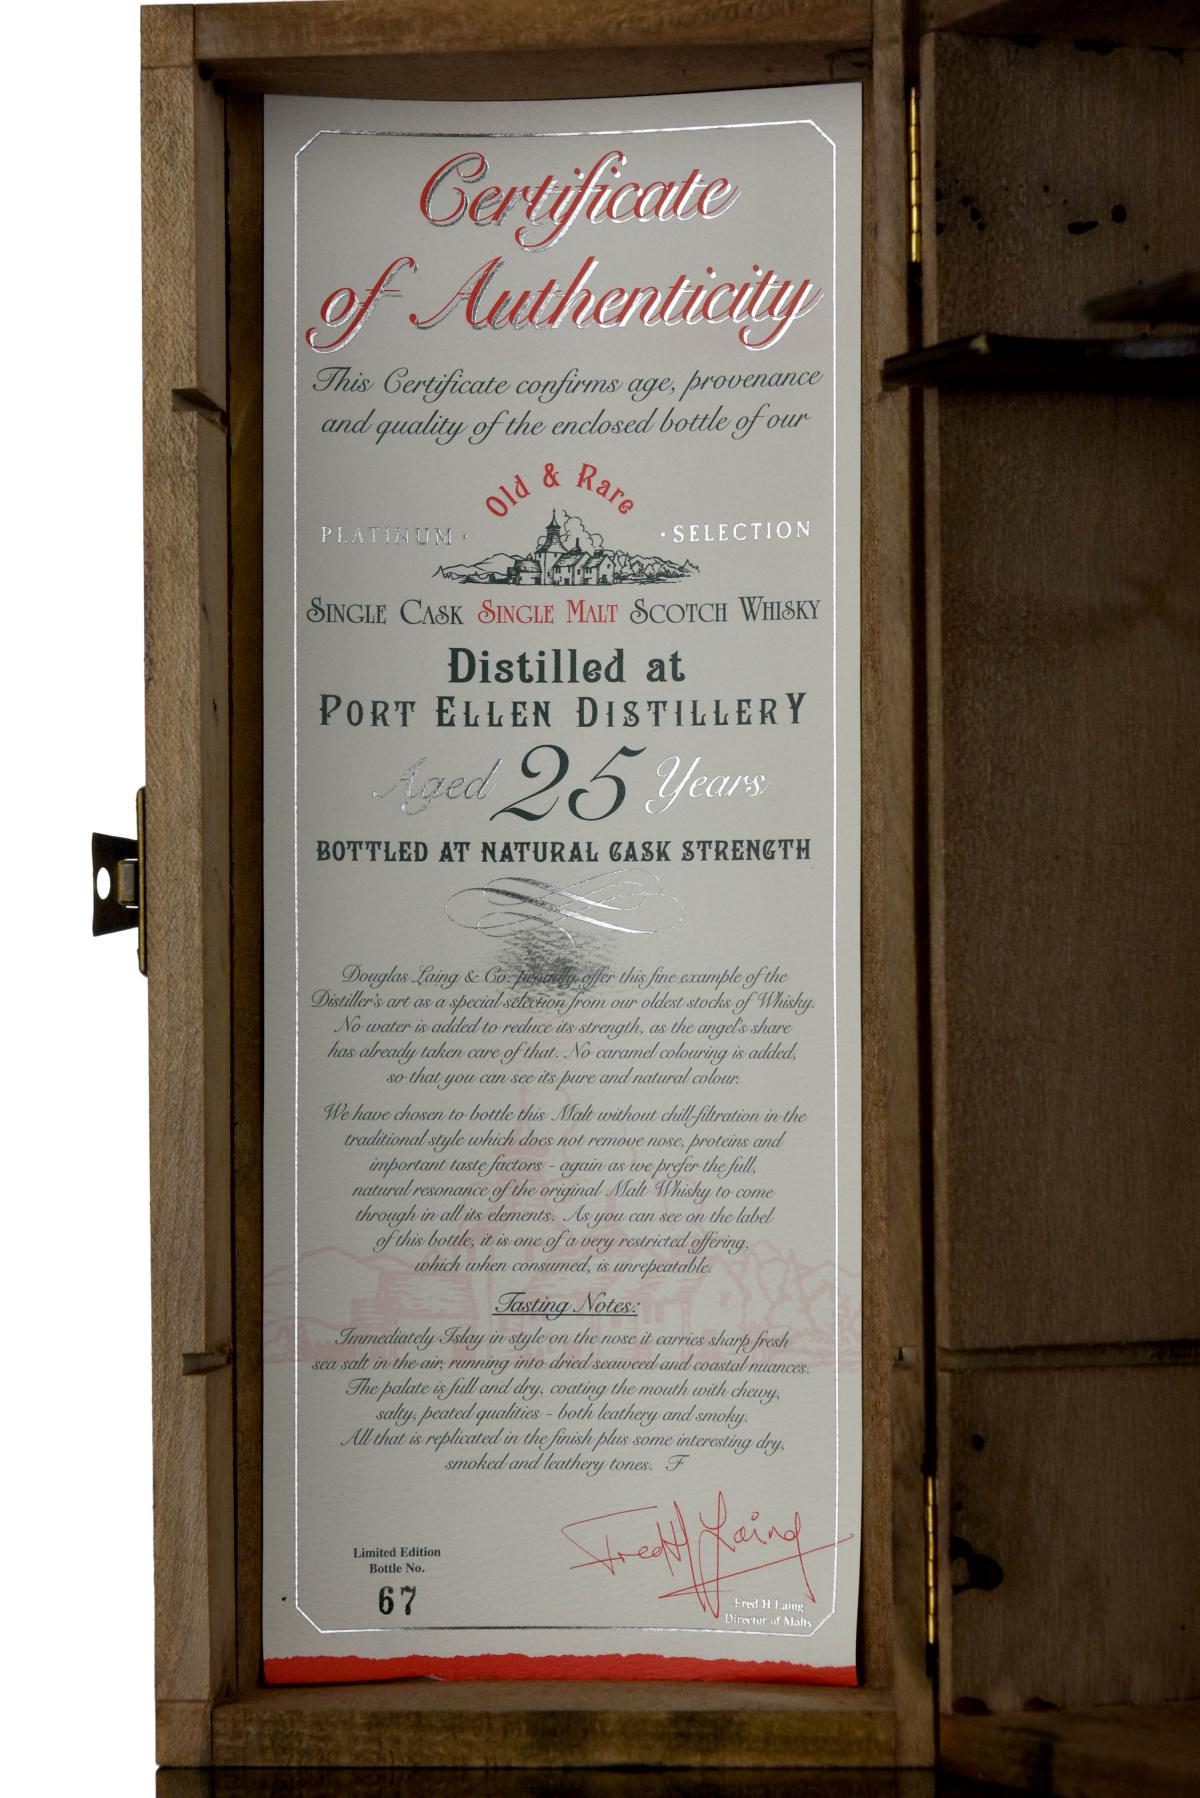 Certificate
of Authenticity
This Certificate confirms age, provenance
and quality of the enclosed bottle of our
Old & Rare
PLATINUM · · SELECTION
SINGLE CASK SINGLE MALT SCOTCH WHISKY
Distilled at
PORT ELLEN DISTILLERY
Aged 25 Years
BOTTLED AT NATURAL CASK STRENGTH
Douglas Laing & Co. proudly offer this fine example of the
Distiller's art as a special selection from our oldest stocks of Whisky.
No water is added to reduce its strength, as the angel's share
has already taken care of that. No caramel colouring is added,
so that you can see its pure and natural colour.
We have chosen to bottle this Malt without chill-filtration in the
traditional style which does not remove nose, proteins and
important taste factors - again as we prefer the full,
natural resonance of the original Malt Whisky to come
through in all its elements. As you can see on the label
of this bottle, it is one of a very restricted offering,
which when consumed, is unrepeatable.
Tasting Notes:
Immediately Islay in style on the nose it carries sharp fresh
sea salt in the air, running into dried seaweed and coastal nuances.
The palate is full and dry, coating the mouth with chewy,
salty, peated qualities - both leathery and smoky.
All that is replicated in the finish plus some interesting dry,
smoked and leathery tones. F
Fred H Laing
Limited Edition
Bottle No.
67
Fred H Laing
Director of Malts